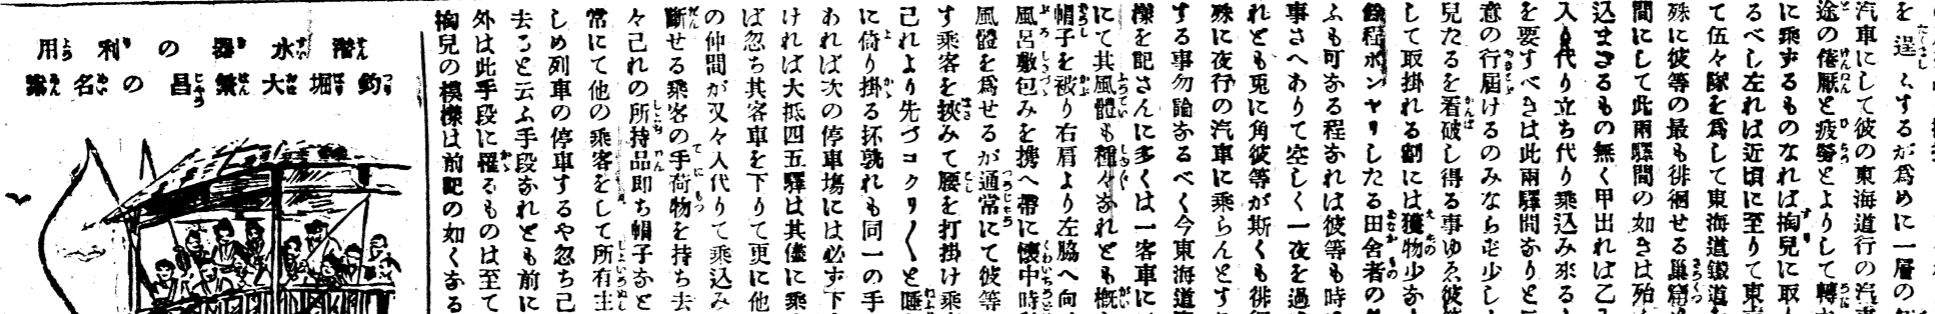 を逞ふするが為めに一層の
汽車にして彼の東海道行の汽車
途の倦厭と疲勞とよりして轉
に乘ずるものなれば掏兒に取
るべし左れば近頃に至りて東
て伍々隊を爲して東海道鐵道
殊に彼等の最も徘徊せる巣窟
間にして此兩驛間の如きは殆
込まざるもの無く甲出れば乙
入り代り立ち代り乘込み來る
を要すべきは此兩驛間なりと
意の行屆けるのみならず少し
兒たるを看破し得る事ゆゑ彼
して取掛れる割には獲物少な
餘程ボンヤリしたる田舎者の
ふも可なる程なれば彼等も時
事さへありて空しく一夜を過
れども兎に角彼等が斯くも徘
殊に夜行の汽車に乘らんとす
する事勿論なるべく今東海道
樣を記さんに多くは一客車に
にて其風體も種々なれども概
帽子を被り右肩より左脇へ向
風呂敷包みを携へ帶に懷中時
風體を爲せるが通常にて彼等
す乘客を挾みて腰を打掛け乘
己れより先づコクリ〱と睡
に倚り掛る抔孰れも同一の手
われば次の停車塲には必ず下
ければ大抵四五驛は其儘に乘
ば忽ち其客車を下りて更に他
の仲間が又々入代りて乘込み
斷せる乘客の手荷物を持ち去
々己れの所持品即ち帽子など
常にて他の乘客をして所有主
しめ列車の停車するや忽ち己
去ると云ふ手段なれども前に
外は此手段に罹るものは至て
掏兒の模樣は前記の如くなる
潜水器の利用
釣堀大繁昌の名案